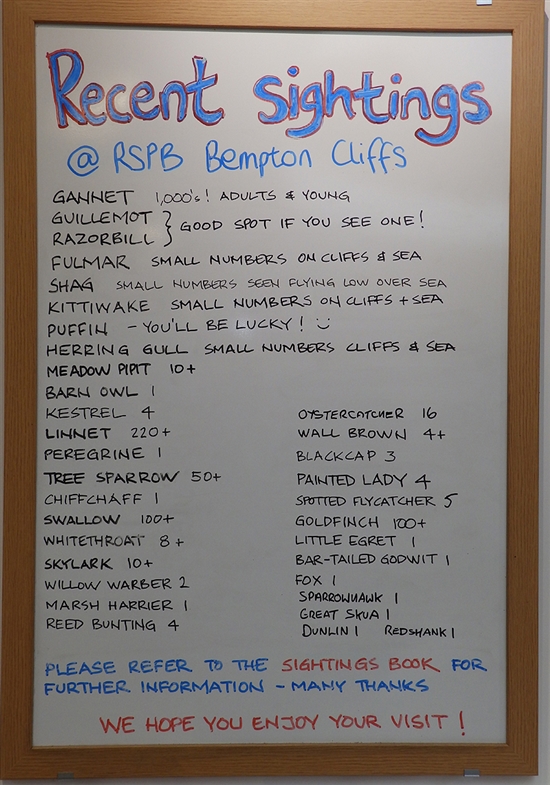 Recent Sightings
@ RSPB Bempton Cliffs
GANNET 1,000's! ADULTS & YOUNG
GUILLEMOT
RAZORBILL } GOOD SPOT IF YOU SEE ONE!
FULMAR SMALL NUMBERS ON CLIFFS & SEA
SHAG SMALL NUMBERS SEEN FLYING LOW OVER SEA
KITTIWAKE SMALL NUMBERS ON CLIFFS + SEA
PUFFIN - YOU'LL BE LUCKY! :)
HERRING GULL SMALL NUMBERS CLIFFS & SEA
MEADOW PIPIT 10+
BARN OWL 1
KESTREL 4
LINNET 220+
PEREGRINE 1
TREE SPARROW 50+
CHIFFCHAFF 1
SWALLOW 100+
WHITETHROAT 8+
SKYLARK 10+
WILLOW WARBER 2
MARSH HARRIER 1
REED BUNTING 4
OYSTERCATCHER 16
WALL BROWN 4+
BLACKCAP 3
PAINTED LADY 4
SPOTTED FLYCATCHER 5
GOLDFINCH 100+
LITTLE EGRET 1
BAR-TAILED GODWIT 1
FOX 1
SPARROWHAWK 1
GREAT SKUA 1
DUNLIN 1 REDSHANK 1
PLEASE REFER TO THE SIGHTINGS BOOK FOR
FURTHER INFORMATION - MANY THANKS
WE HOPE YOU ENJOY YOUR VISIT!